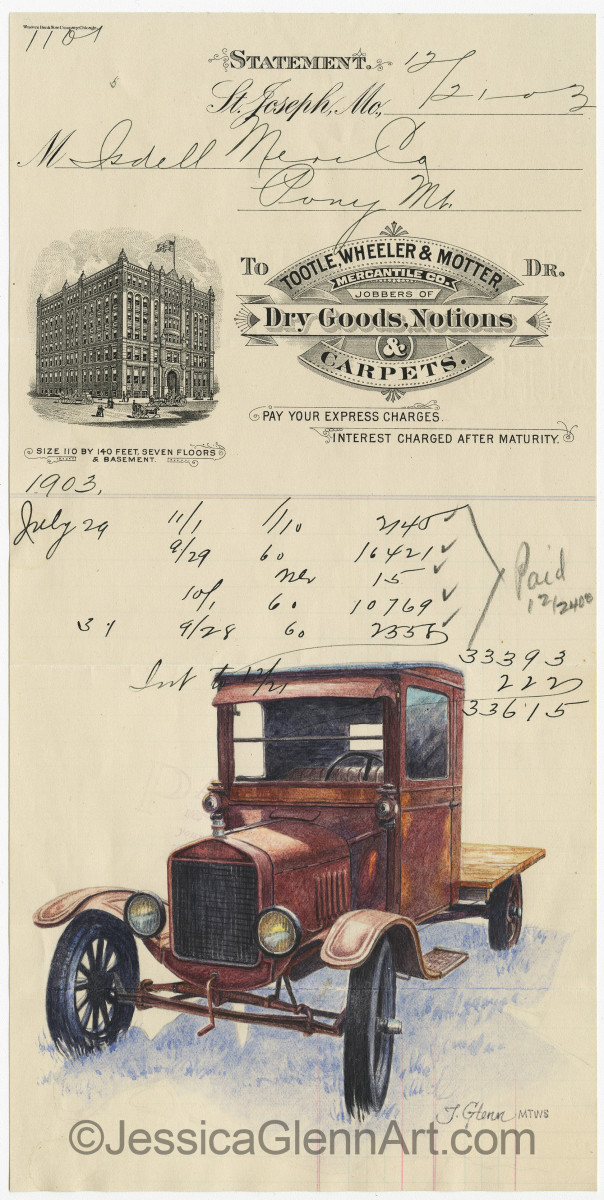 Western Bank Note Company Chicago
1101
STATEMENT.
St. Joseph, Mo., 12/21-03
M Isdell Merc Co
Pony Mt.
TO TOOTLE, WHEELER & MOTTER, DR.
MERCANTILE CO.
JOBBERS OF
Dry Goods, Notions
&
CARPETS.
PAY YOUR EXPRESS CHARGES.
INTEREST CHARGED AFTER MATURITY.
SIZE 110 BY 140 FEET, SEVEN FLOORS
& BASEMENT.
1903.
July 29 11/1 1/10 2145
9/29 60 16421
15
10/1 60 10769
31 9/28 60
Paid
33393
Int to 12/21 222
33615
J. Glenn MTWS
©JessicaGlennArt.com